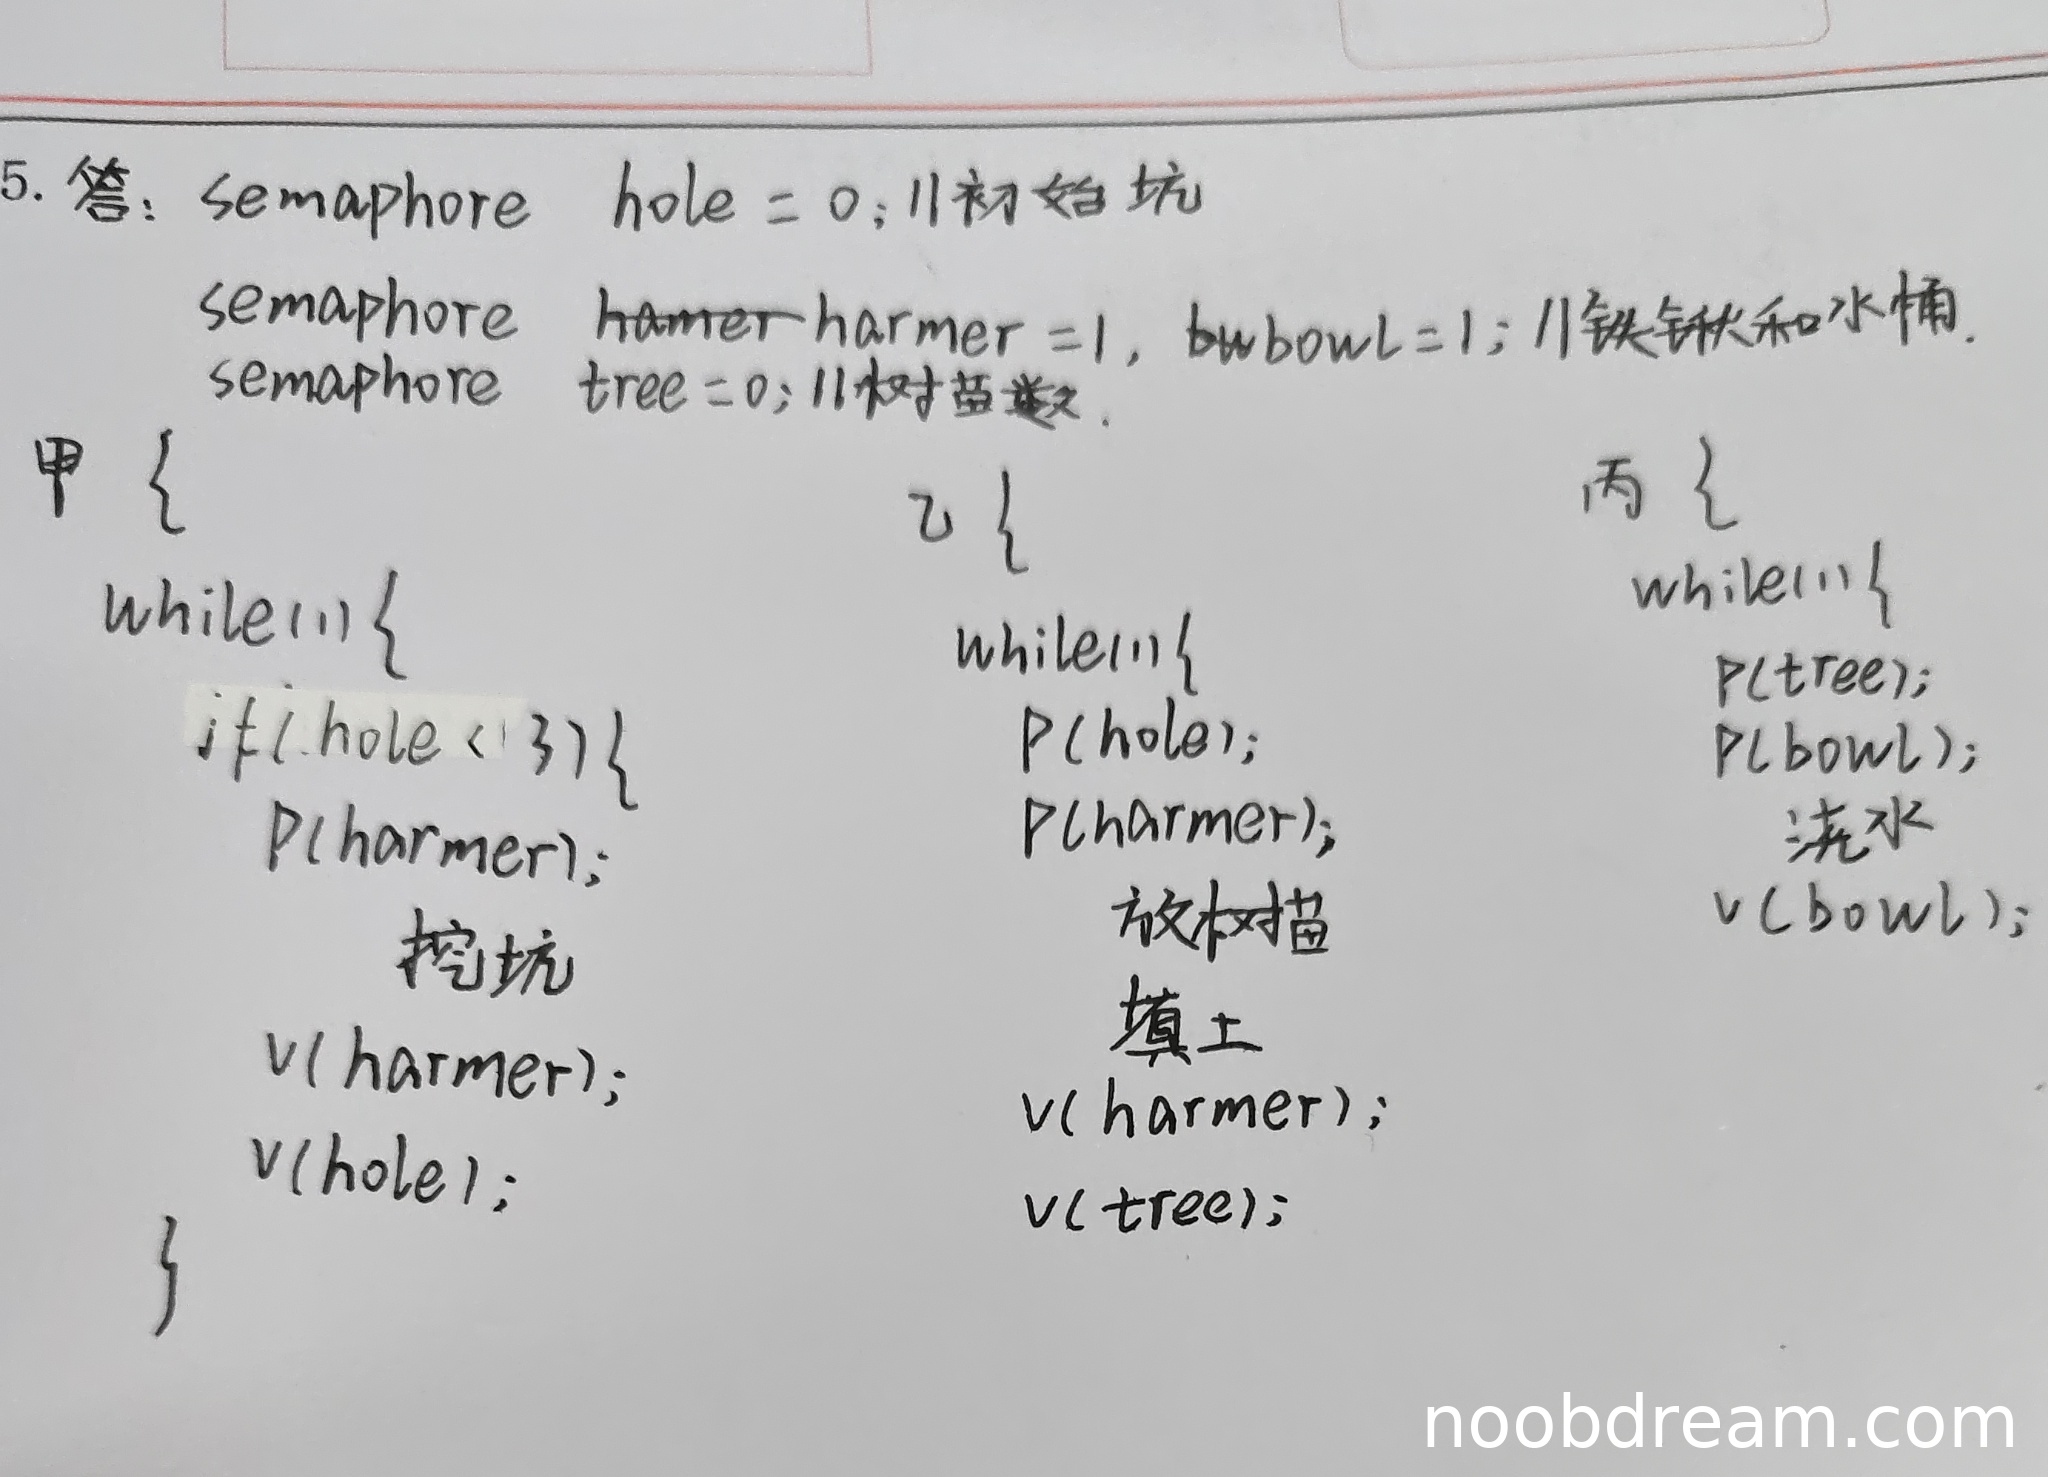 5. 答: semaphore hole = 0; //初始坑
semaphore hamer harmer = 1, bw bowl = 1; //铁锹和水桶.
semaphore tree = 0; //树苗数.
甲 {
while(1){
if(hole < 3){
P(harmer);
挖坑
V(harmer);
V(hole);
}
乙 {
while(1){
P(hole);
P(harmer);
放树苗
填土
V(harmer);
V(tree);
丙 {
while(1){
P(tree);
P(bowl);
浇水
V(bowl);
noobdream.com